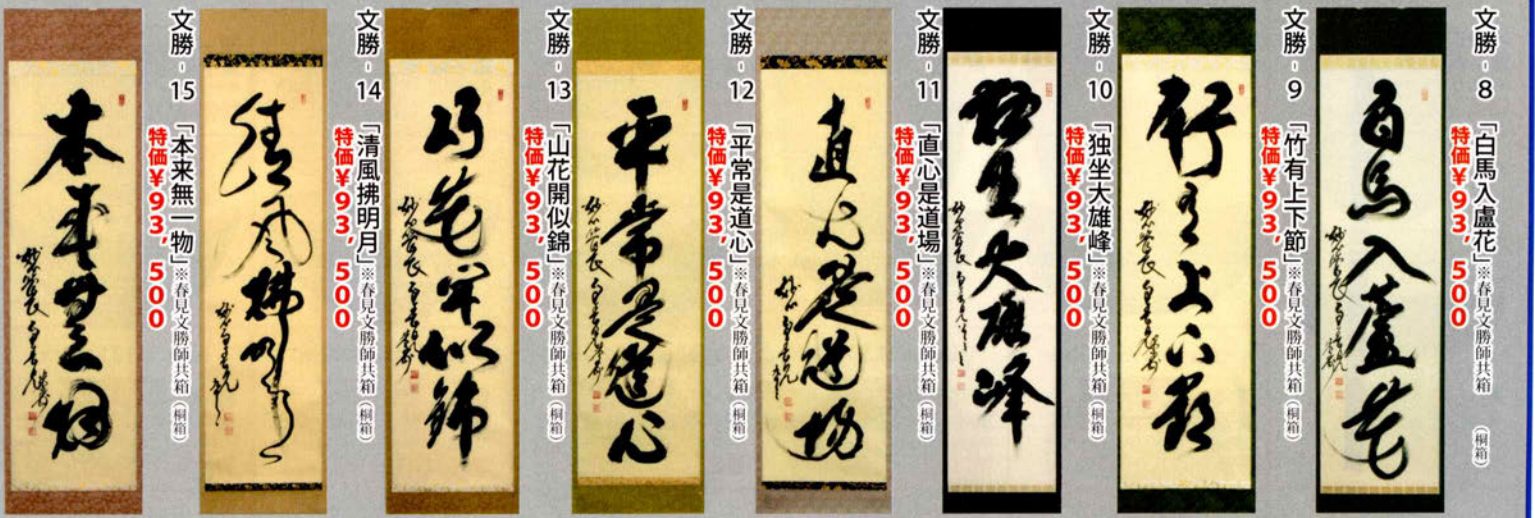 文勝-8 「白馬入盧花」※春見文勝師共箱(桐箱)
特価¥93,500
白馬入蘆花
文勝-9 「竹有上下節」※春見文勝師共箱(桐箱)
特価¥93,500
竹有上下節
文勝-10 「独坐大雄峰」※春見文勝師共箱(桐箱)
特価¥93,500
独坐大雄峰
文勝-11 「直心是道場」※春見文勝師共箱(桐箱)
特価¥93,500
直心是道場
文勝-12 「平常是道心」※春見文勝師共箱(桐箱)
特価¥93,500
平常是道心
文勝-13 「山花開似錦」※春見文勝師共箱(桐箱)
特価¥93,500
山花開似錦
文勝-14 「清風拂明月」※春見文勝師共箱(桐箱)
特価¥93,500
清風拂明月
文勝-15 「本来無一物」※春見文勝師共箱(桐箱)
特価¥93,500
本来無一物